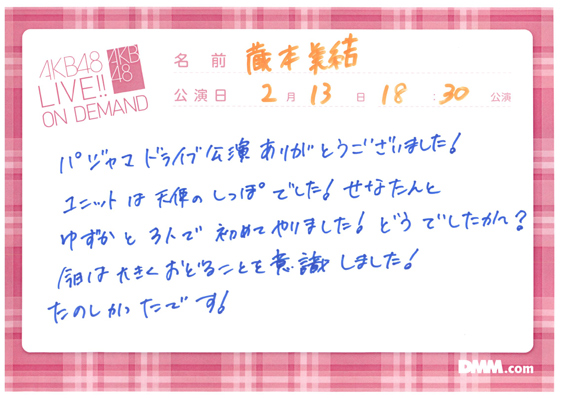 AKB48
LIVE!!
ON DEMAND
AKB
48
名前 蔵本美結
公演日 2月13日 18:30 公演
パジャマドライブ公演ありがとうございました!
ユニットは天使のしっぽでした!せなたんと
ゆずかと3人で初めてやりました!どうでしたか〜?
今日は大きくおどることを意識しました!
たのしかったです!
DMM.com